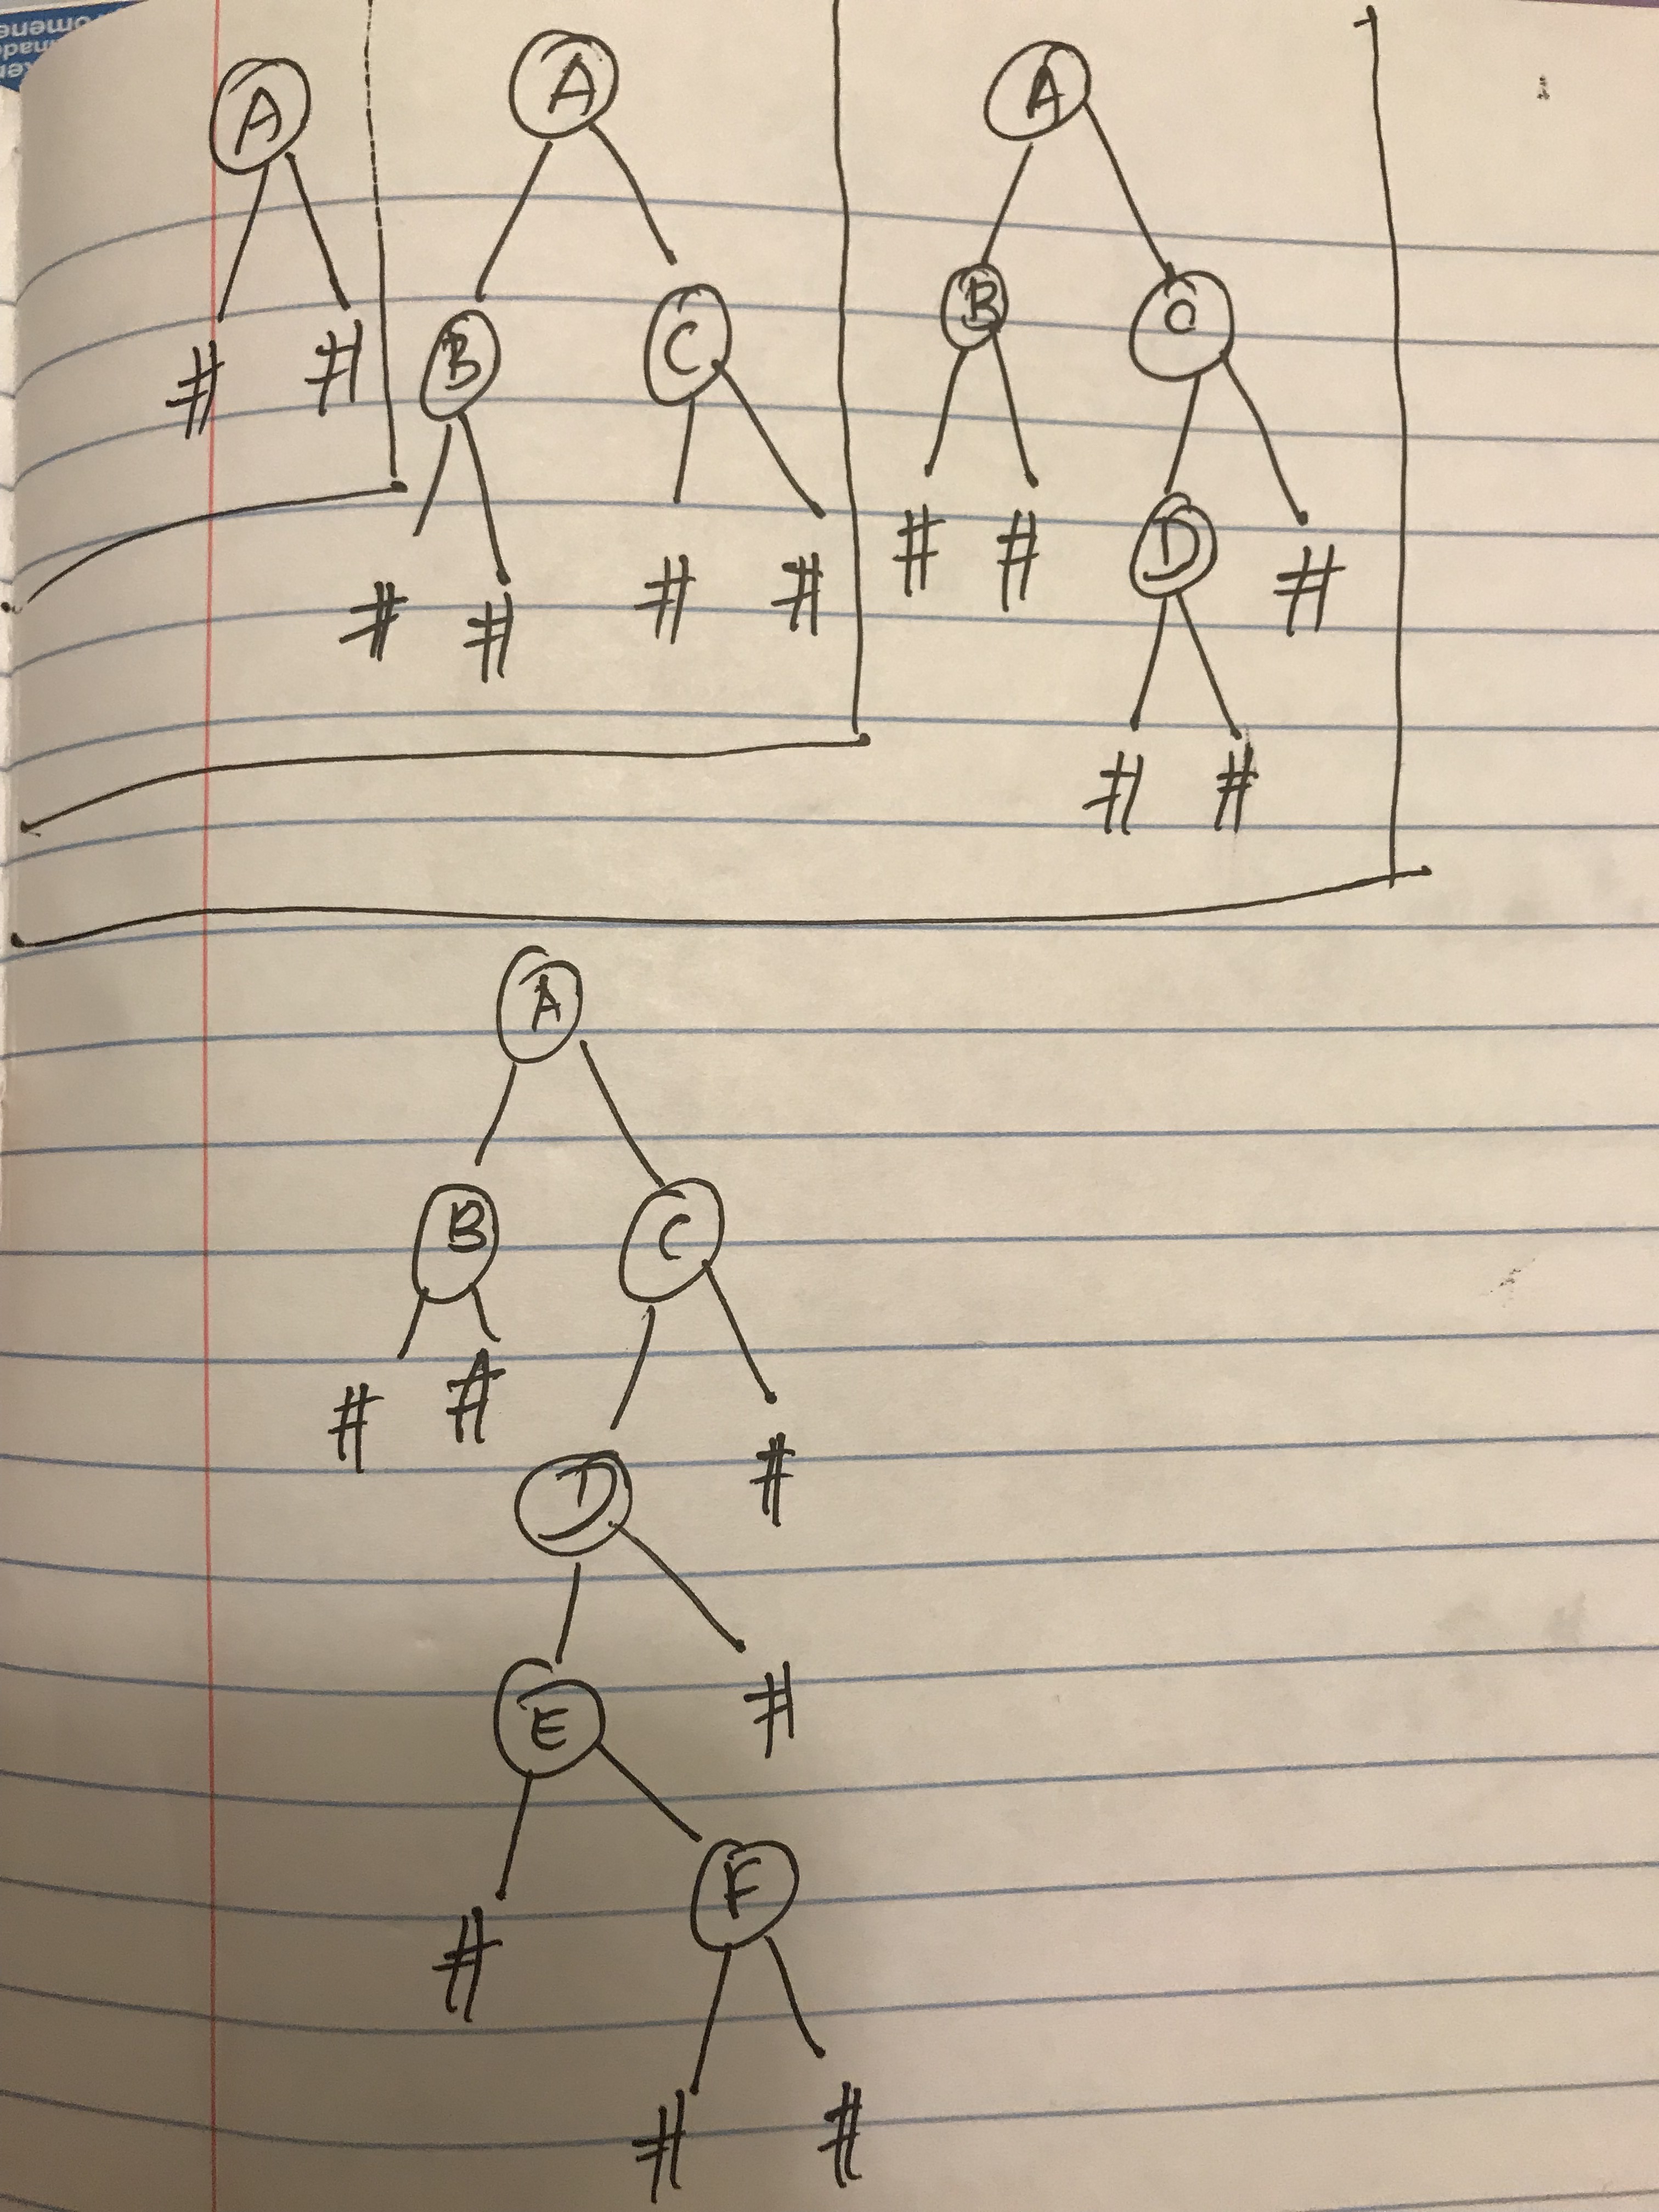 A
# #
A
B C
# # # #
A
B C
# # D #
# #
A
B C
# # D #
E #
# F
# #